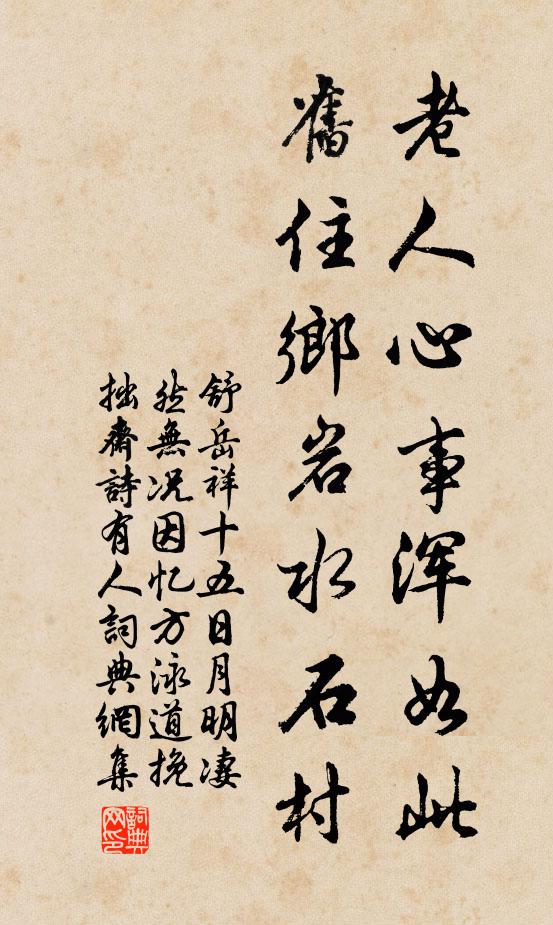 老人心事浑如此
舊住鄉岩水石村
舒岳祥十五日月明凄
然無况因忆方泳道挽
拙齋詩有人詞典網集
詞典网印